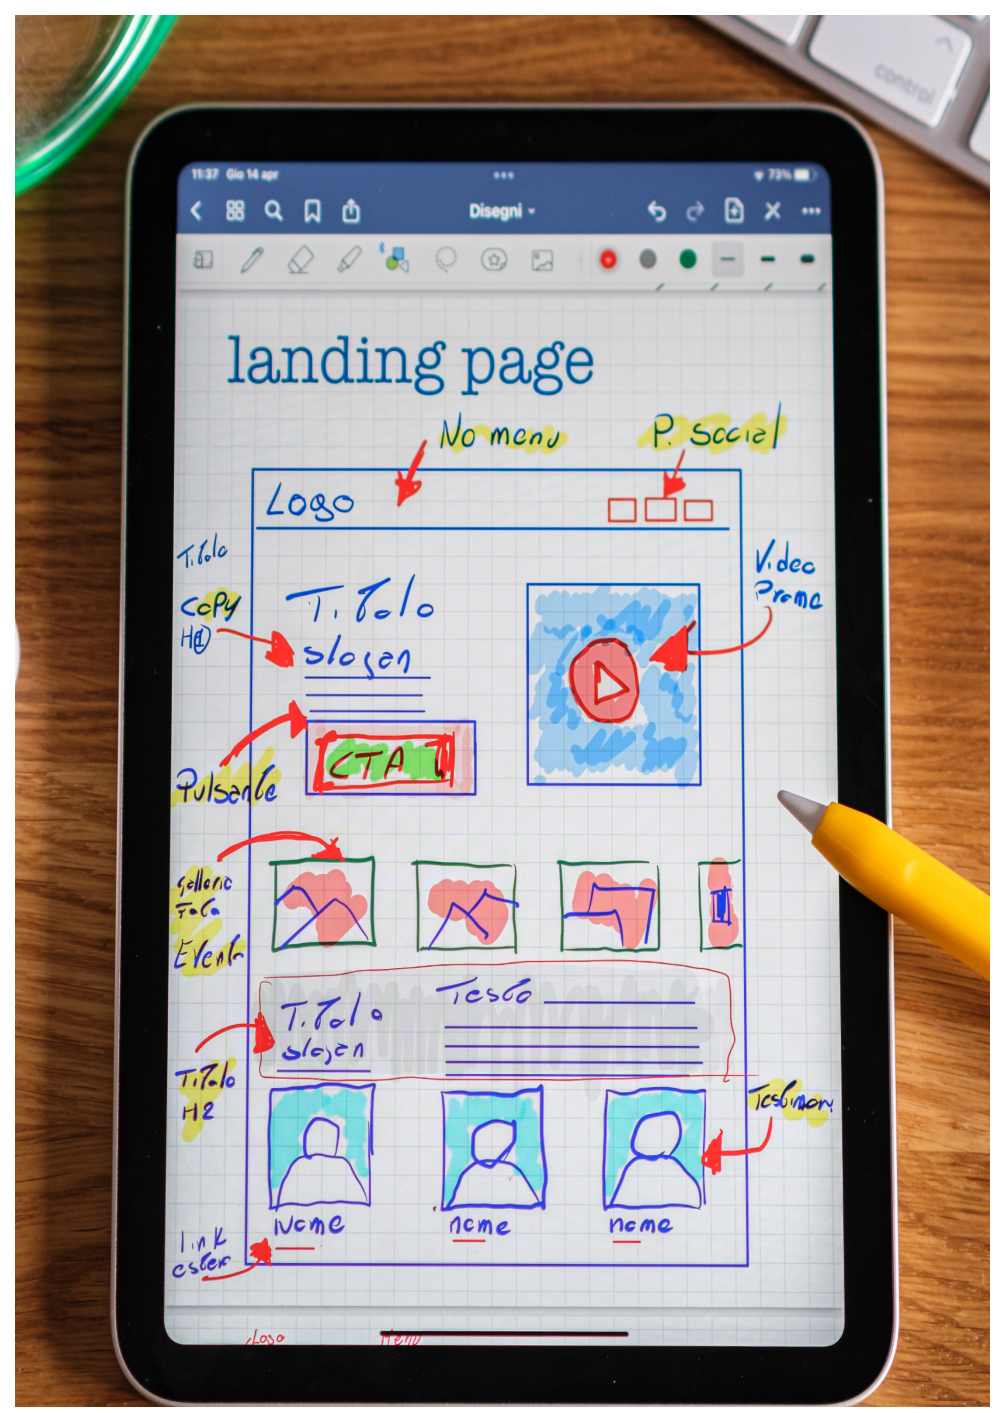 control
11:37 Gio 14 apr
73%
Disegni
landing page
No menu
P. social
Logo
Titolo
Copy
H1
Titolo
slogan
Video
Promo
CTA
Pulsante
galleria
Foto
Evento
Titolo
slogan
Testo
Titolo
H2
Testimon
Name
name
name
link
ester
Logo
Menu